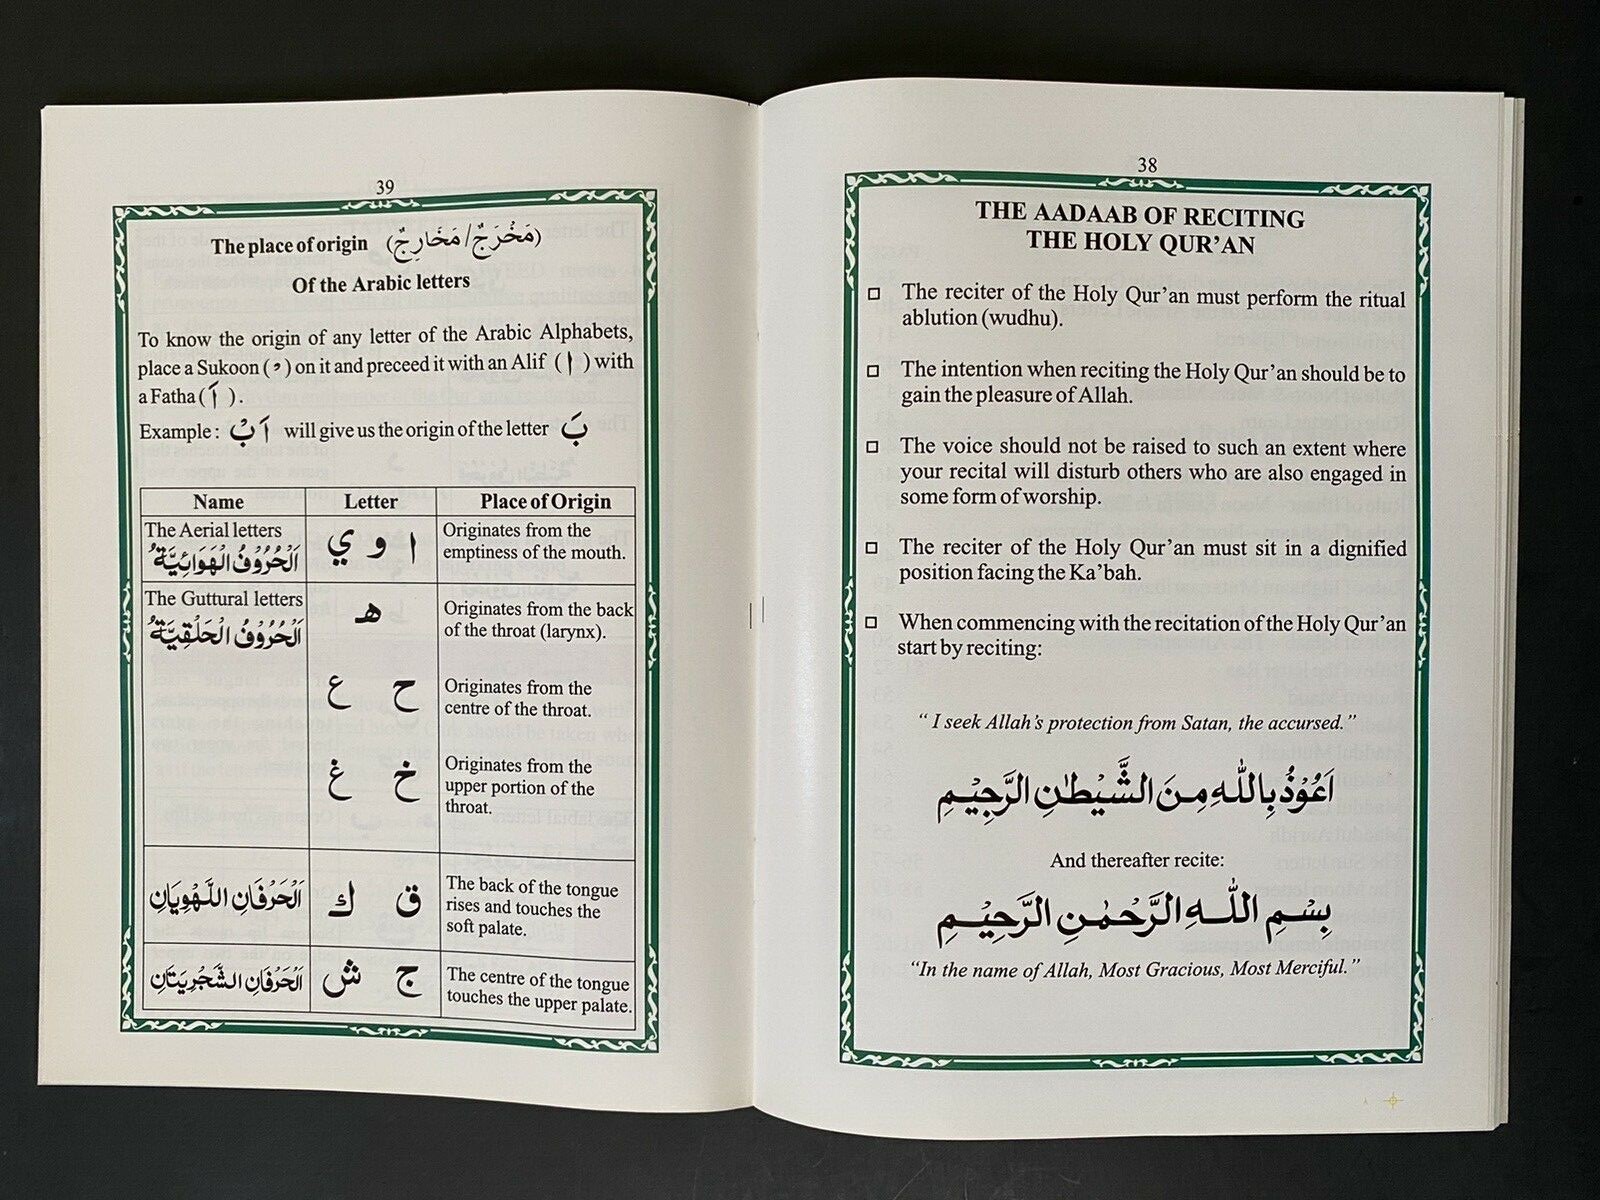 38
THE AADAAB OF RECITING
THE HOLY QUR'AN
The reciter of the Holy Qur'an must perform the ritual
ablution (wudhu).
The intention when reciting the Holy Qur'an should be to
gain the pleasure of Allah.
The voice should not be raised to such an extent where
your recital will disturb others who are also engaged in
some form of worship.
The reciter of the Holy Qur'an must sit in a dignified
position facing the Ka'bah.
When commencing with the recitation of the Holy Qur'an
start by reciting:
" I seek Allah's protection from Satan, the accursed."
اَعُوْذُ بِاللّٰهِ مِنَ الشَّيْطٰنِ الرَّجِيْمِ
And thereafter recite:
بِسْمِ اللّٰهِ الرَّحْمٰنِ الرَّحِيْمِ
"In the name of Allah, Most Gracious, Most Merciful."
39
The place of origin (مَخْرَجٌ/ مَخَارِجٌ)
Of the Arabic letters
To know the origin of any letter of the Arabic Alphabets,
place a Sukoon ( ْ ) on it and preceed it with an Alif ( ا ) with
a Fatha ( اَ ).
Example : اَ بْ will give us the origin of the letter بَ
Name Letter Place of Origin
The Aerial letters
اَلْحُرُوْفُ الْهَوَائِيَّةُ
ا و ي
Originates from the
emptiness of the mouth.
The Guttural letters
اَلْحُرُوْفُ الْحَلْقِيَّةُ
هـ
Originates from the back
of the throat (larynx).
ح ع
Originates from the
centre of the throat.
خ غ
Originates from the
upper portion of the
throat.
اَلْحَرْفَانِ اللَّهْوِيَانِ
ق ك
The back of the tongue
rises and touches the
soft palate.
اَلْحَرْفَانِ الشَّجْرِيَتَانِ
ج ش
The centre of the tongue
touches the upper palate.